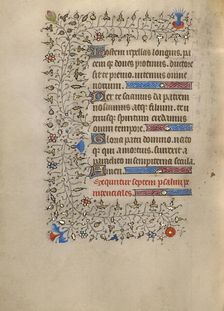 Hostem repellas longius pa
cem q dones protinus ductore
sic te previo vitemus omne
noxium
Per te sciamus da patrem
noscamus atque filium te u
triusque spiritum credamus
omni tempore
Gloria patri domino nato
que qui a mortuis surrexit a
paraclito in sempiterna secula
Amen
Sequntur septem psalmi pe
nitenciales